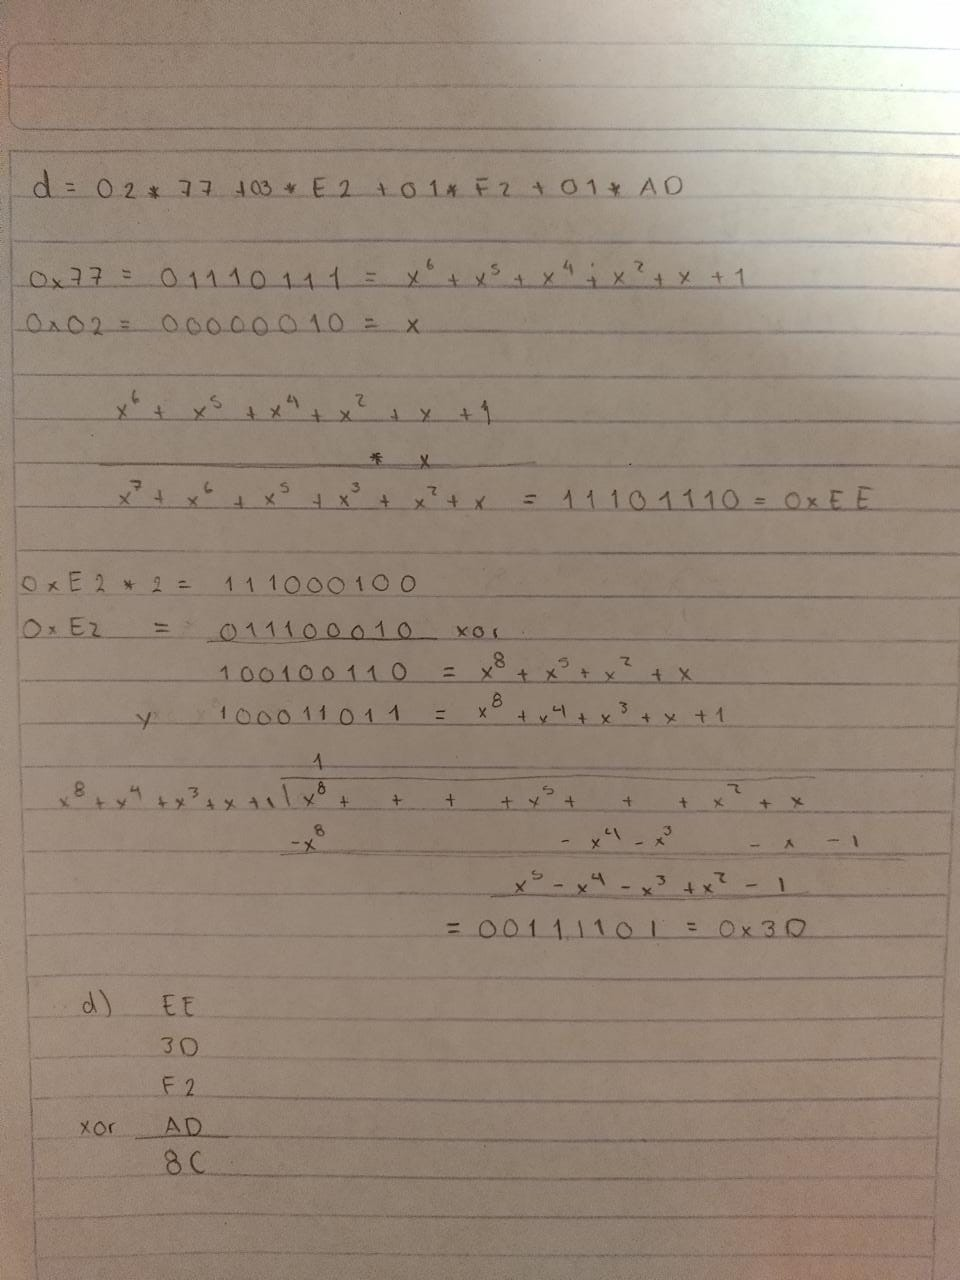 d = 02 * 77 + 03 * E2 + 01 * F2 + 01 * AD
0x77 = 01110111 = x⁶ + x⁵ + x⁴ + x² + x + 1
0x02 = 00000010 = x
x⁶ + x⁵ + x⁴ + x² + x + 1
* x
x⁷ + x⁶ + x⁵ + x³ + x² + x = 11101110 = 0xEE
0xE2 * 2 = 111000100
0xE2 = 011100010 xor
100100110 = x⁸ + x⁵ + x² + x
y 100011011 = x⁸ + x⁴ + x³ + x + 1
1
x⁸ + x⁴ + x³ + x + 1 | x⁸ + + + + x⁵ + + + x² + x
-x⁸ - x⁴ - x³ - x - 1
x⁵ - x⁴ - x³ + x² - 1
= 00111101 = 0x3D
d) EE
3D
F2
xor AD
8C